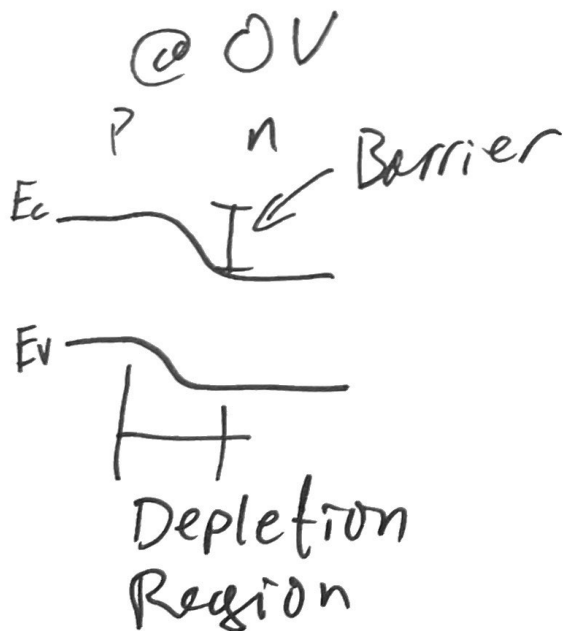 @ 0V
P n
Barrier
Ec
Ev
Depletion
Region